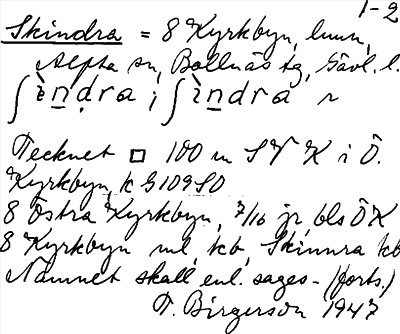 1-2
Skindra = 8 Kyrkbyn, lmn,
Alfta sn, Bollnäs tg, Gävl. l.
ʃìndra ; ʃìndra r
Tecknet □ 100 m SV K i Ö.
Kyrkbyn, k G109SO
8 Östra Kyrkbyn, 7/16 jr, bls ÖK
8 Kyrkbyn ml, kb, Skinnra kb
Namnet skall enl. sages- (forts.)
T. Birgerson 1947